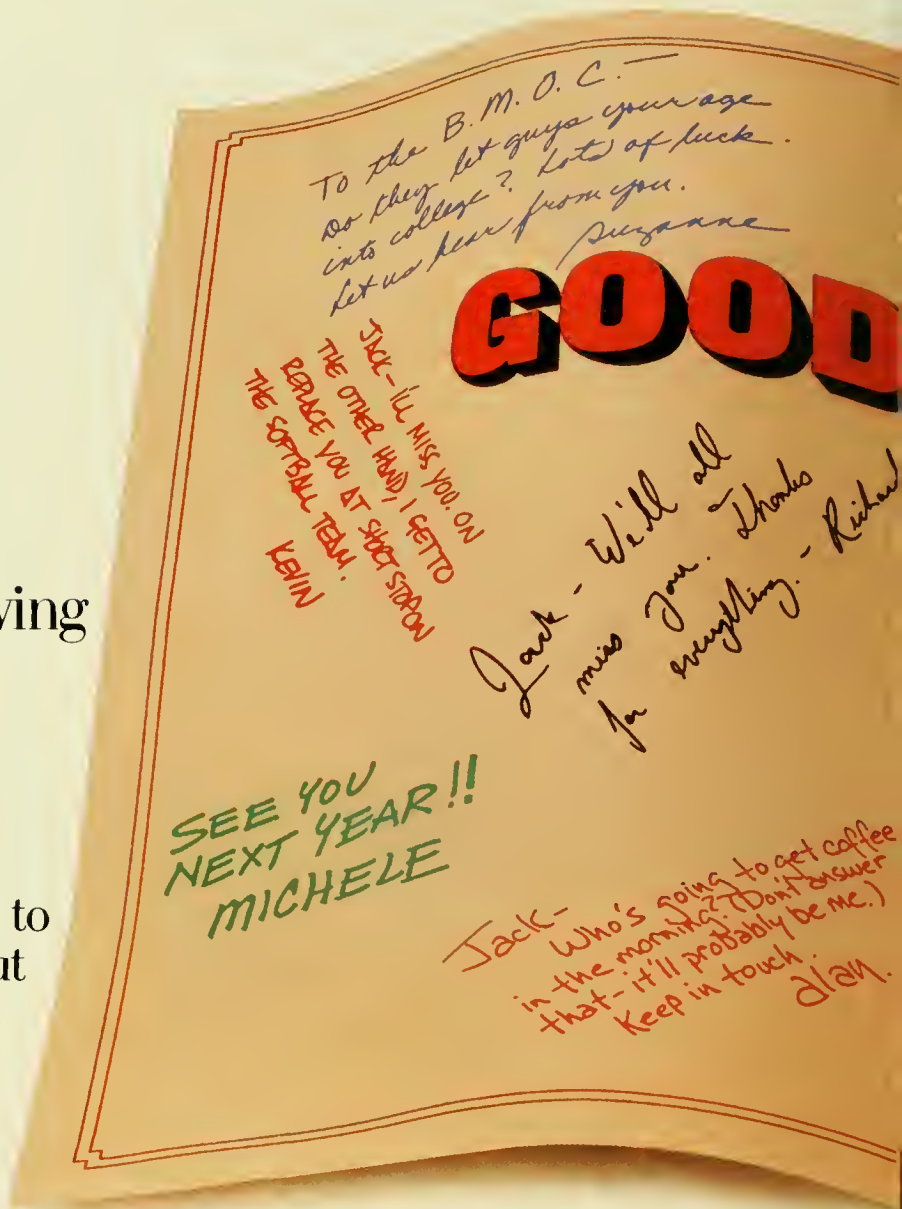 To the B.M.O.C.—
Do they let guys your age
into college? Lots of luck.
Let us hear from you.
Suzanne
GOOD
JACK- I'LL MISS YOU. ON
THE OTHER HAND, I GET TO
REPLACE YOU AT SHORT STOP ON
THE SOFTBALL TEAM.
KEVIN
Jack - We'll all
miss you. Thanks
for everything. - Richard
ving
SEE YOU
NEXT YEAR!!
MICHELE
to
ut
Jack-
Who's going to get coffee
in the morning? (Don't answer
that - it'll probably be me.)
Keep in touch.
alan.